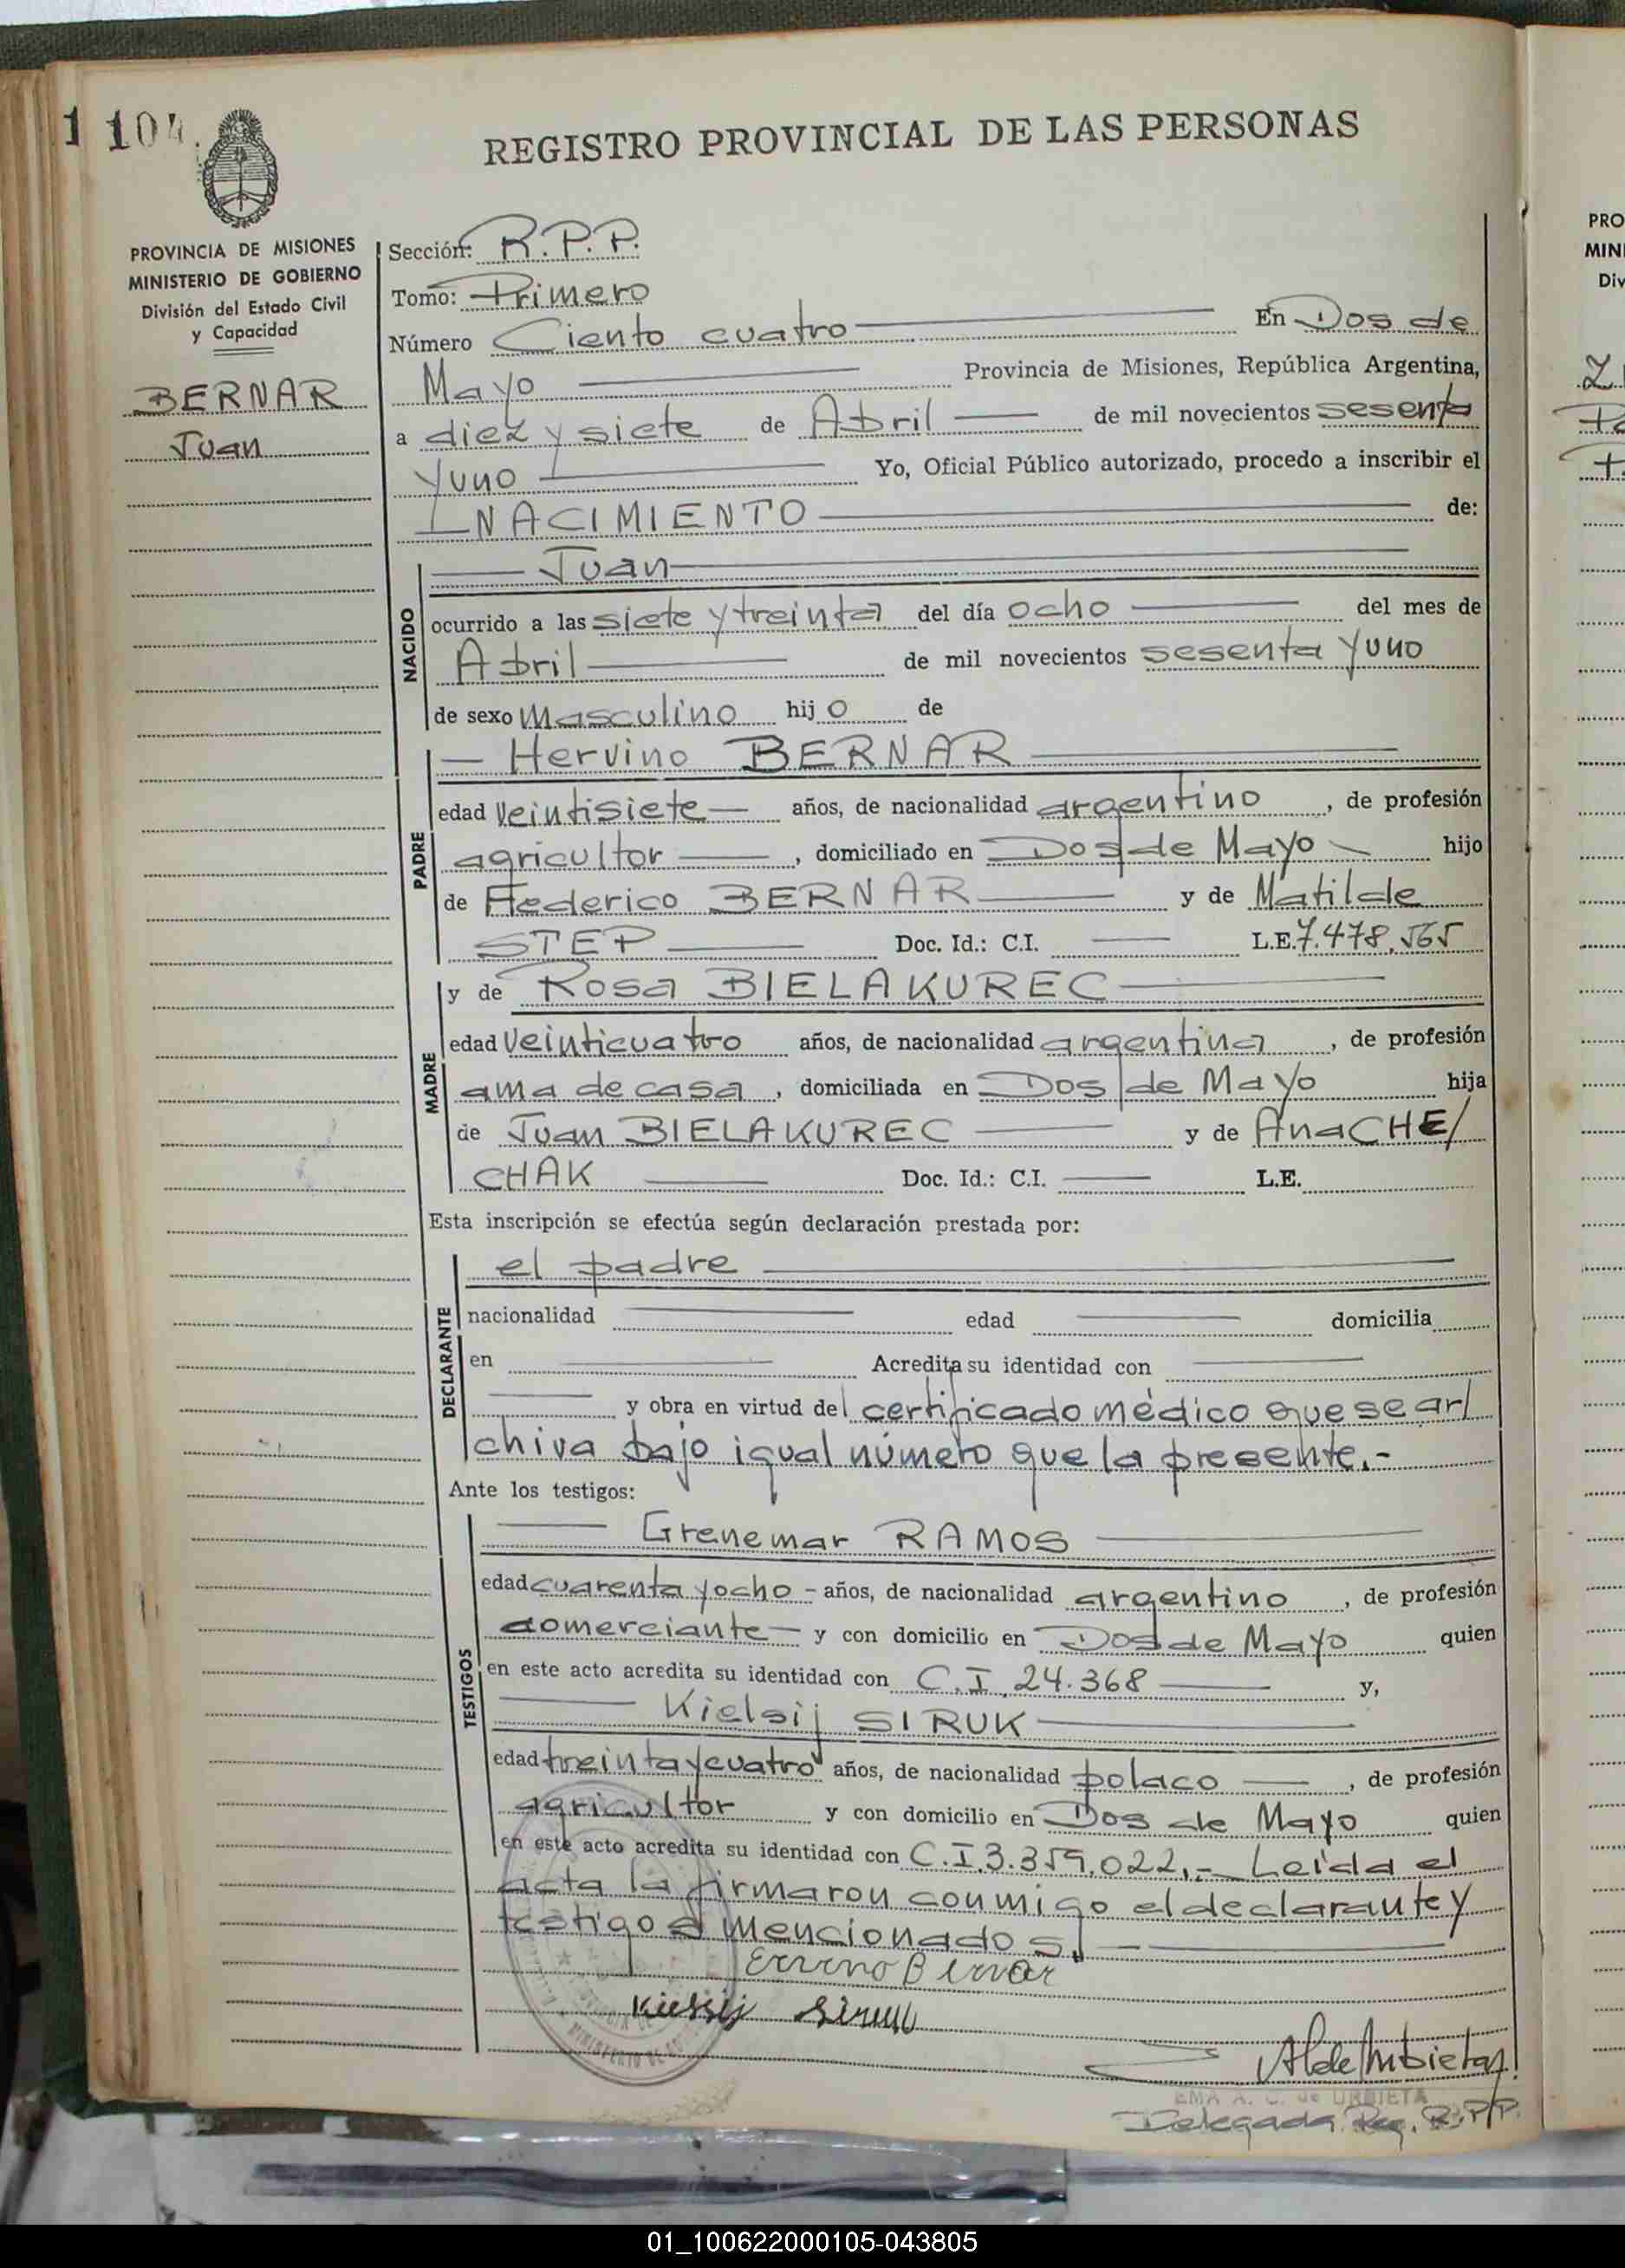 1 104
REGISTRO PROVINCIAL DE LAS PERSONAS
PROVINCIA DE MISIONES
MINISTERIO DE GOBIERNO
División del Estado Civil
y Capacidad
BERNAR
Juan
Sección: R.P.P.
Tomo: Primero
Número Ciento cuatro En Dos de
Mayo Provincia de Misiones, República Argentina,
a diez y siete de Abril de mil novecientos sesenta
y uno Yo, Oficial Público autorizado, procedo a inscribir el
NACIMIENTO de:
NACIDO
Juan
ocurrido a las siete y treinta del día ocho del mes de
Abril de mil novecientos sesenta y uno
de sexo masculino hijo de
PADRE
Hervino BERNAR
edad veintisiete años, de nacionalidad argentino, de profesión
agricultor, domiciliado en Dos de Mayo hijo
de Federico BERNAR y de Matilde
STEP Doc. Id.: C.I. L.E. 7.478.565
MADRE
y de Rosa BIELAKUREC
edad veinticuatro años, de nacionalidad argentina, de profesión
ama de casa, domiciliada en Dos de Mayo hija
de Juan BIELAKUREC y de Ana CHE/
CHAK Doc. Id.: C.I. L.E.
Esta inscripción se efectúa según declaración prestada por:
DECLARANTE
el padre
nacionalidad edad domicilia
en Acredita su identidad con
y obra en virtud del certificado médico que se ar/
chiva bajo igual número que la presente.-
Ante los testigos:
TESTIGOS
Grenemar RAMOS
edad cuarenta y ocho - años, de nacionalidad argentino, de profesión
comerciante y con domicilio en Dos de Mayo quien
en este acto acredita su identidad con C.I. 24.368 y,
Kielsij SIRUK
edad treinta y cuatro años, de nacionalidad polaco, de profesión
agricultor y con domicilio en Dos de Mayo quien
en este acto acredita su identidad con C.I. 3.359.022,- Leida el
acta la firmaron conmigo el declarante y
testigos mencionados.
Ervino Bernar
Kielsij Siruk
EMA A. C. de URBIETA
Delegada Reg. R.P.P.
PRO
MIN
Div
01_100622000105-043805